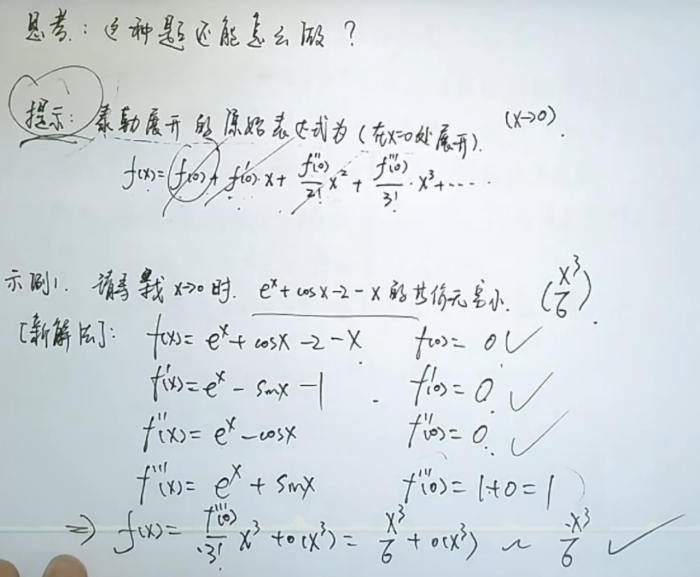 思考：这种题还能怎么做？
提示：泰勒展开的原始表达式为（在x=0处展开）. (x→0).
f(x)=f(0)+f'(0)·x+f''(0)/2! x²+f'''(0)/3!·x³+……
示例1. 请寻找x→0时. eˣ+cosx-2-x的等价无穷小. (x³/6).
[新解法]: f(x)=eˣ+cosx-2-x f(0)=0 ✓
f'(x)=eˣ-sinx-1 f'(0)=0. ✓
f''(x)=eˣ-cosx f''(0)=0. ✓
f'''(x)=eˣ+sinx f'''(0)=1+0=1
⇒ f(x)=f'''(0)/3! x³+o(x³)=x³/6+o(x³) ~ x³/6 ✓